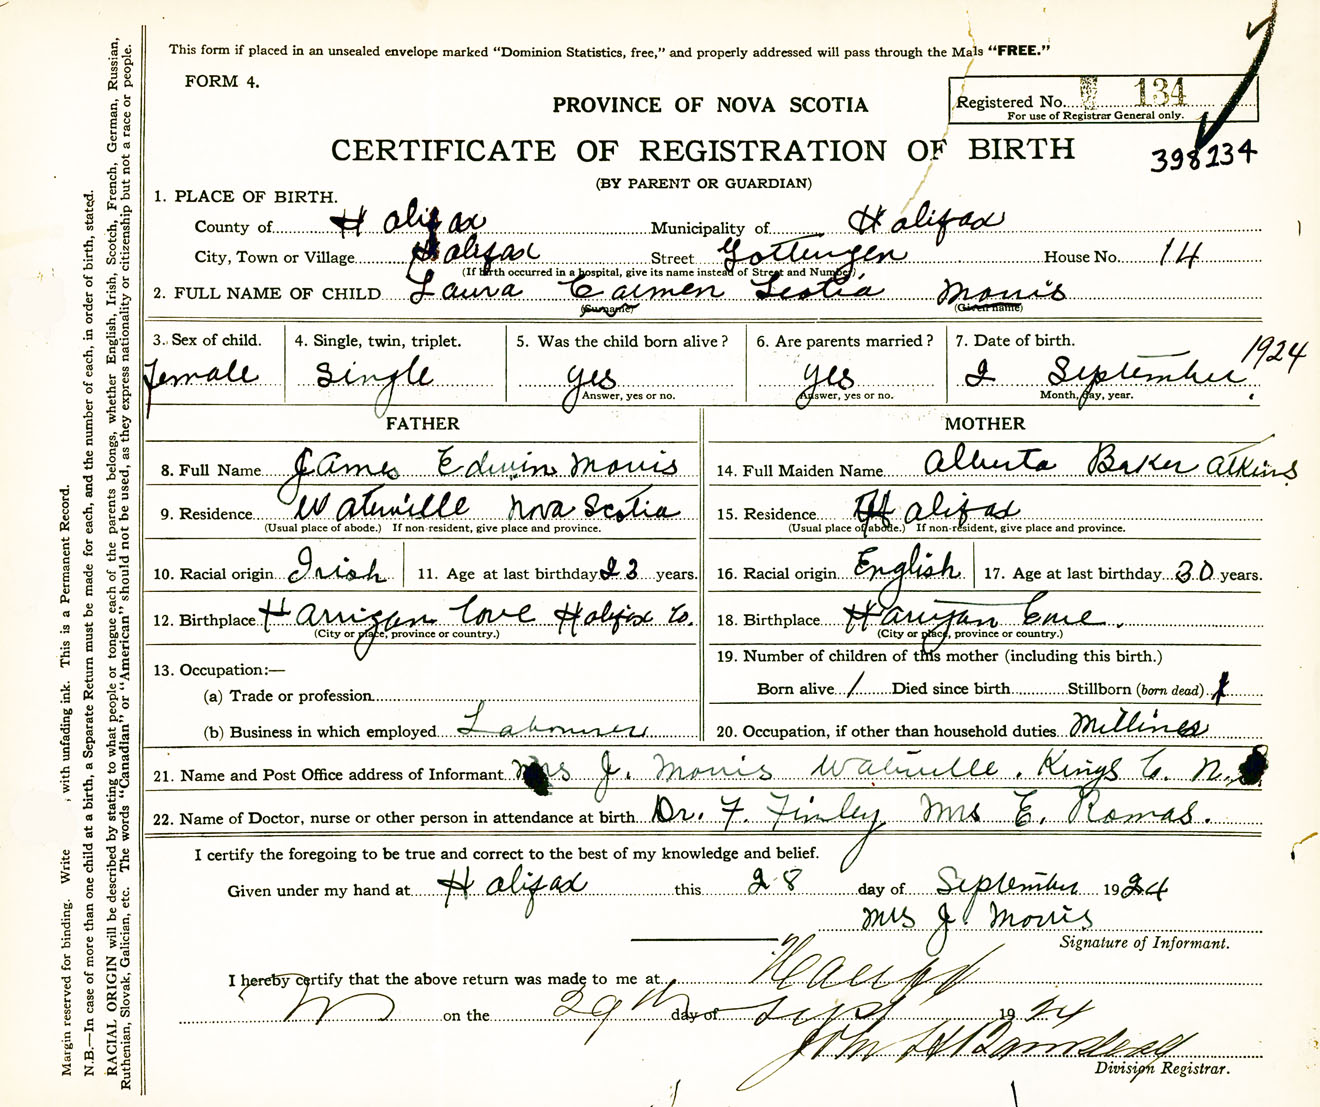 This form if placed in an unsealed envelope marked "Dominion Statistics, free," and properly addressed will pass through the Mals "FREE."
FORM 4.
PROVINCE OF NOVA SCOTIA
Registered No. 134
For use of Registrar General only.
CERTIFICATE OF REGISTRATION OF BIRTH
398134
(BY PARENT OR GUARDIAN)
1. PLACE OF BIRTH.
County of Halifax Municipality of Halifax
City, Town or Village Halifax Street Gottingen House No. 14
(If birth occurred in a hospital, give its name instead of Street and Number)
2. FULL NAME OF CHILD Laura Carmen Scotia Morris
(Surname) (Given name)
3. Sex of child. 4. Single, twin, triplet. 5. Was the child born alive? 6. Are parents married? 7. Date of birth.
Female Single yes yes 2 September 1924
Answer, yes or no. Answer, yes or no. Month, day, year.
FATHER MOTHER
8. Full Name James Edwin Morris 14. Full Maiden Name Alberta Baker Atkins
9. Residence Waterville Nova Scotia 15. Residence Halifax
(Usual place of abode.) If non-resident, give place and province. (Usual place of abode.) If non-resident, give place and province.
10. Racial origin Irish 11. Age at last birthday 23 years. 16. Racial origin English 17. Age at last birthday 30 years.
12. Birthplace Harrigan Cove Halifax Co. 18. Birthplace Harrigan Cove.
(City or place, province or country.) (City or place, province or country.)
13. Occupation:— 19. Number of children of this mother (including this birth.)
(a) Trade or profession Born alive 1 Died since birth Stillborn (born dead)
(b) Business in which employed Labourer 20. Occupation, if other than household duties Milliner
21. Name and Post Office address of Informant Mrs J. Morris Waterville. Kings Co. N.S
22. Name of Doctor, nurse or other person in attendance at birth Dr. F. Finley Mrs E. Romas.
I certify the foregoing to be true and correct to the best of my knowledge and belief.
Given under my hand at Halifax this 28 day of September 1924
Mrs J. Morris
Signature of Informant.
I hereby certify that the above return was made to me at
on the 29th day of Sept 1924
John
Division Registrar.
Margin reserved for binding. Write , with unfading ink. This is a Permanent Record.
N.B.—In case of more than one child at a birth, a Separate Return must be made for each, and the number of each, in order of birth, stated.
RACIAL ORIGIN will be described by stating to what people or tongue each of the parents belongs, whether English, Irish, Scotch, French, German, Russian,
Ruthenian, Slovak, Galician, etc. The words "Canadian" or "American" should not be used, as they express nationality or citizenship but not a race or people.